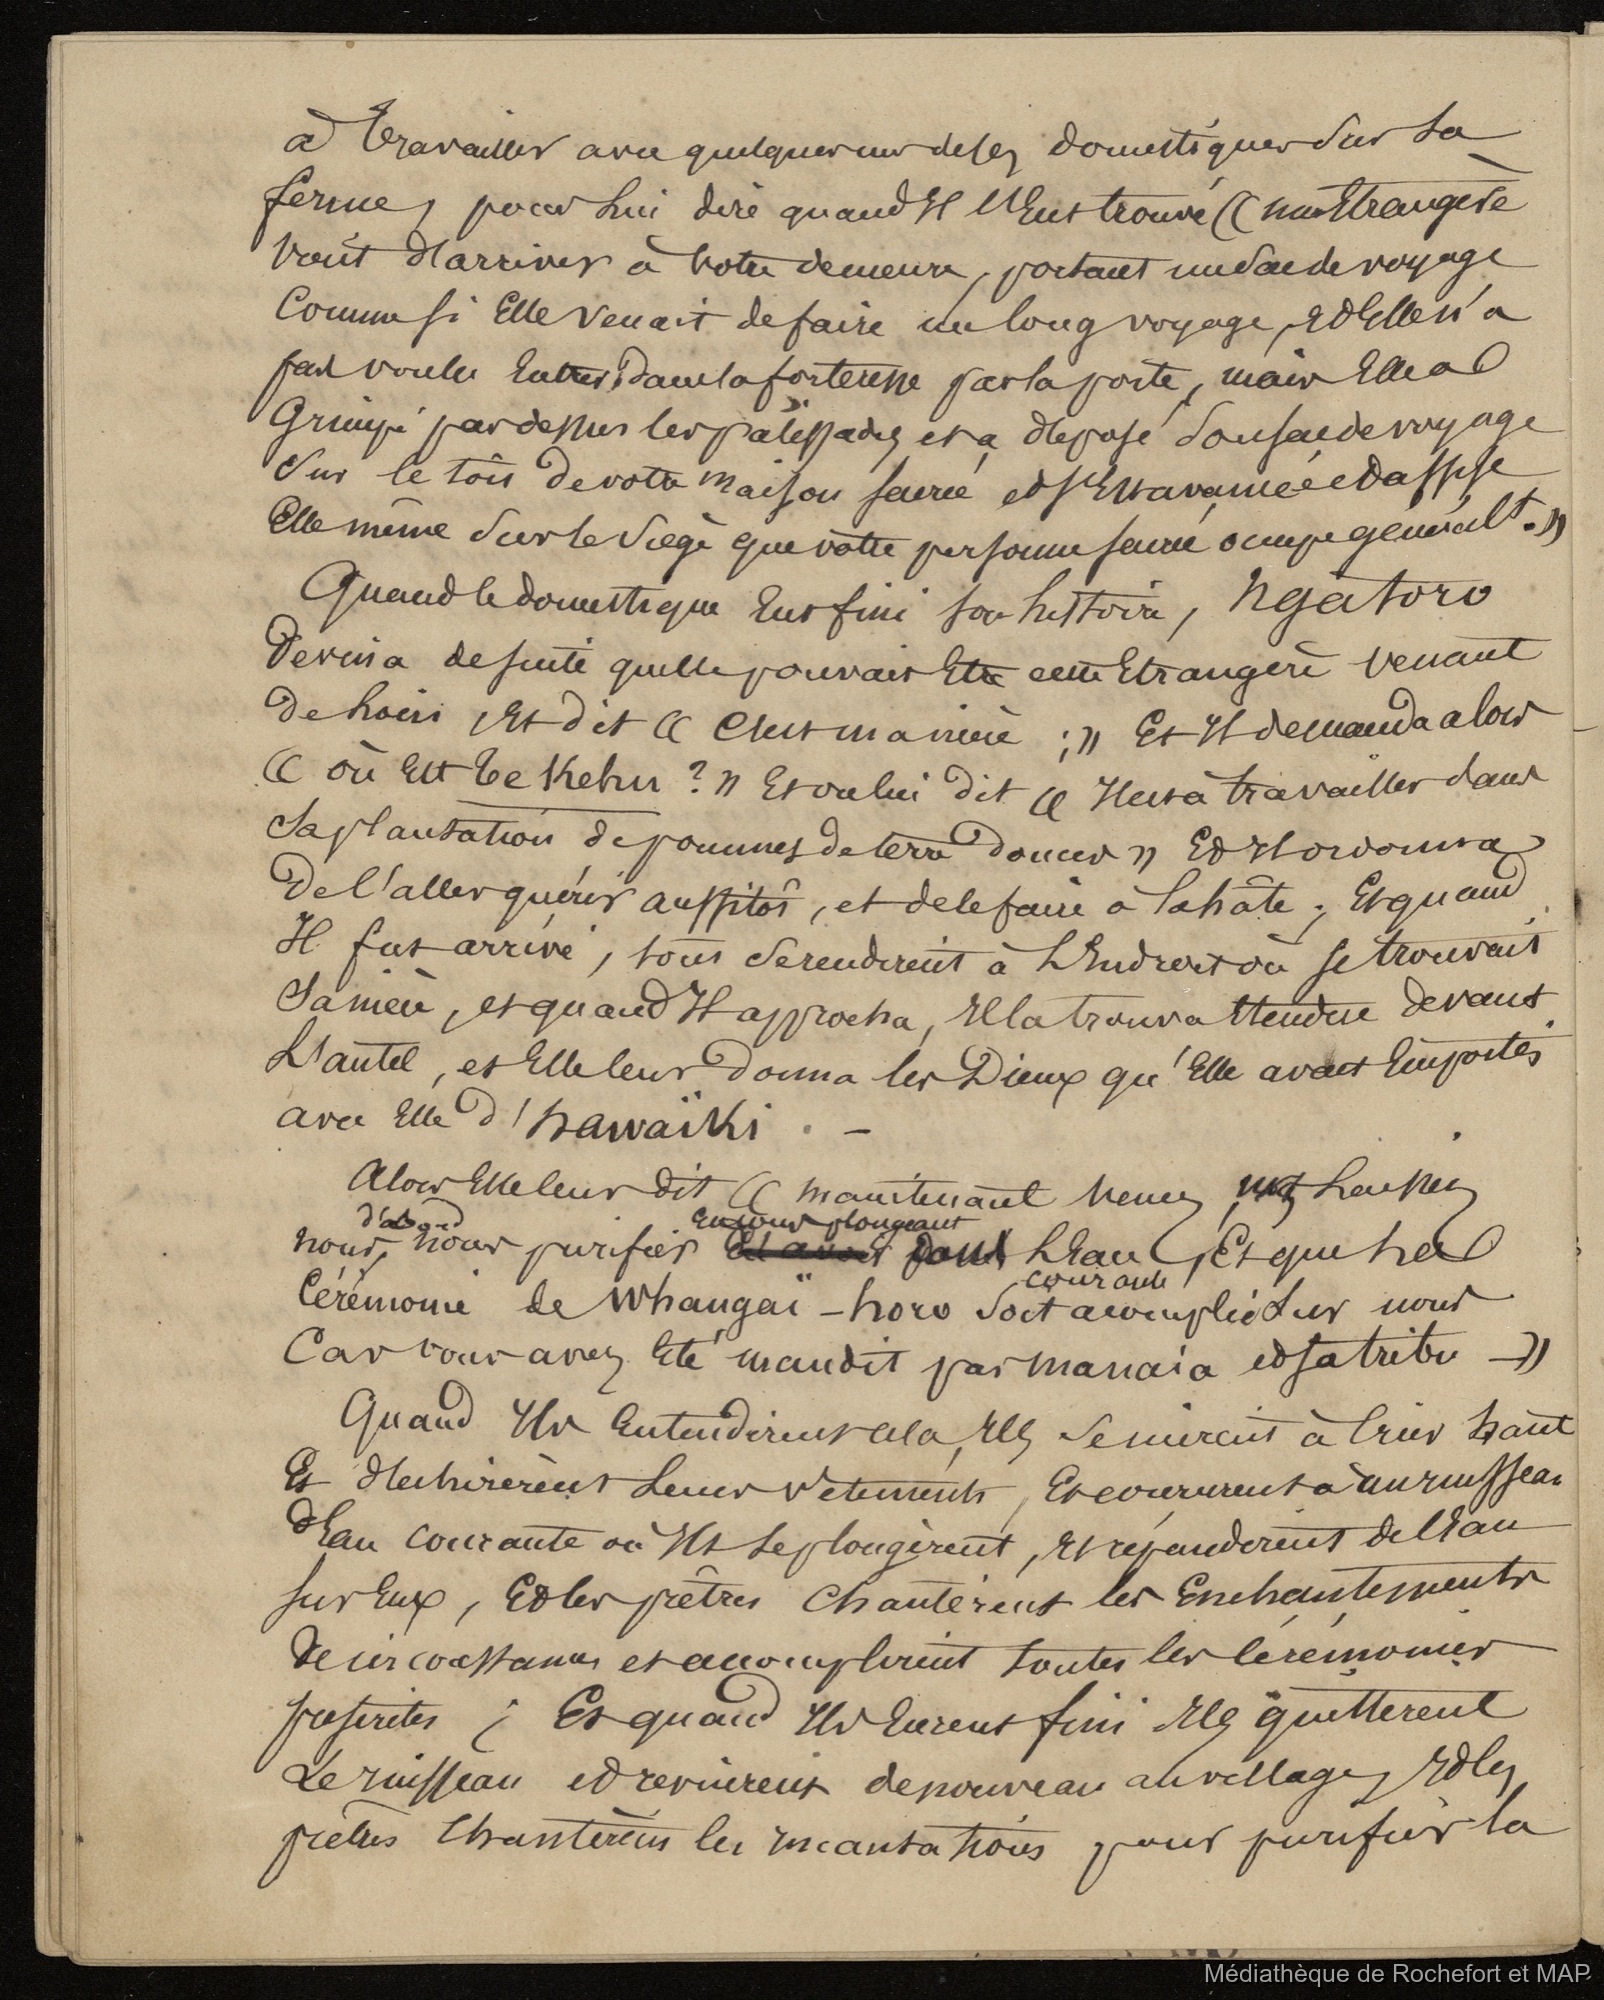 à travailler avec quelques uns de ses domestiques sur la
ferme, pour lui dire quand Il l'Eut trouvé « une Etrangère
vient d'arriver à votre demeure, portant un sac de voyage
Comme si Elle venait de faire un long voyage, et Elle n'a
pas voulu Entrer dans la forteresse par la porte, mais Elle a
Grimpé par dessus les palissades et a déposé son sac de voyage
sur le toit de votre maison sacrée et s'Est avancée et assise
Elle même sur le siège que votre personne sacrée occupe générált. »
Quand le domestique Eut fini son histoire, Ngatoro
Devina de suite quelle pouvait Etre cette Etrangère venant
De loin, Et dit « C'est ma nièce ; » Et Il demanda alors
« où Est Te Kehu ? » Et on lui dit « Il est à travailler dans
sa plantation de pommes de terre douces » Et Il ordonna
De l'aller quérir aussitôt, et de le faire à la hâte ; Et quand
Il fut arrivé, tous se rendirent à L'Endroit où se trouvait
sa nièce, et quand Il approcha, Il la trouva Etendue devant
L'autel, et Elle leur donna les Dieux qu'Elle avait Emportés
avec Elle d'hawaïki . –
Alors Elle leur dit « maintenant venez, et laissez
nous, d'abord nous purifier en nous plongeant dans L'Eau courante, Et que la
Cérémonie de Whangaï-horo soit accomplie sur nous
Car vous avez Eté maudit par Manaia et sa tribu – »
Quand Ils Entendirent cela, Ils se mirent à crier haut
Et déchirèrent leurs vêtements, Et coururent à un ruisseau
d'Eau courante où Ils se plongèrent, et répandirent de l'Eau
sur Eux, Et les prêtres chantèrent les Enchantements
de circonstances et accomplirent toutes les cérémonies
prescrites ; Et quand Ils Eurent fini Ils quittèrent
Le ruisseau et revinrent de nouveau au village, Et les
prêtres chantèrent les incantations pour purifier la
Médiathèque de Rochefort et MAP